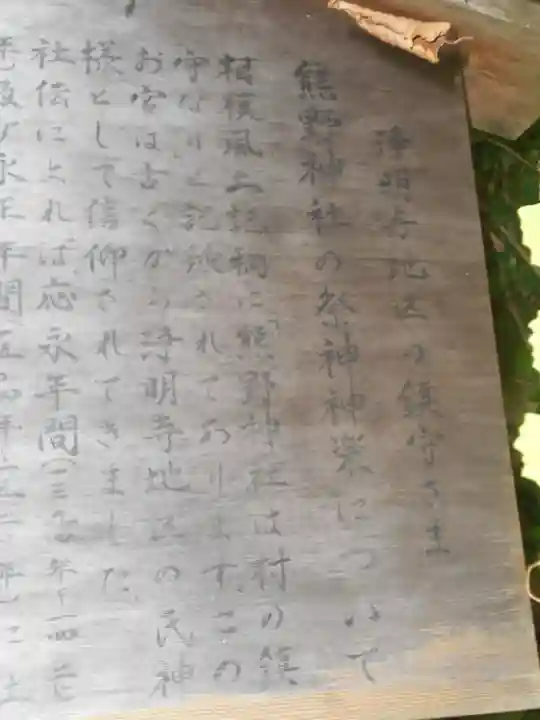 浄明寺地区の鎮守さま
熊野神社の祭神神楽について
相模風土記稿に「熊野神社は村の鎮
守なり」と記載されております。この
お宮は古くから浄明寺地区の氏神
様として信仰されてきました
社伝によれば応永年間(一三
永正年間